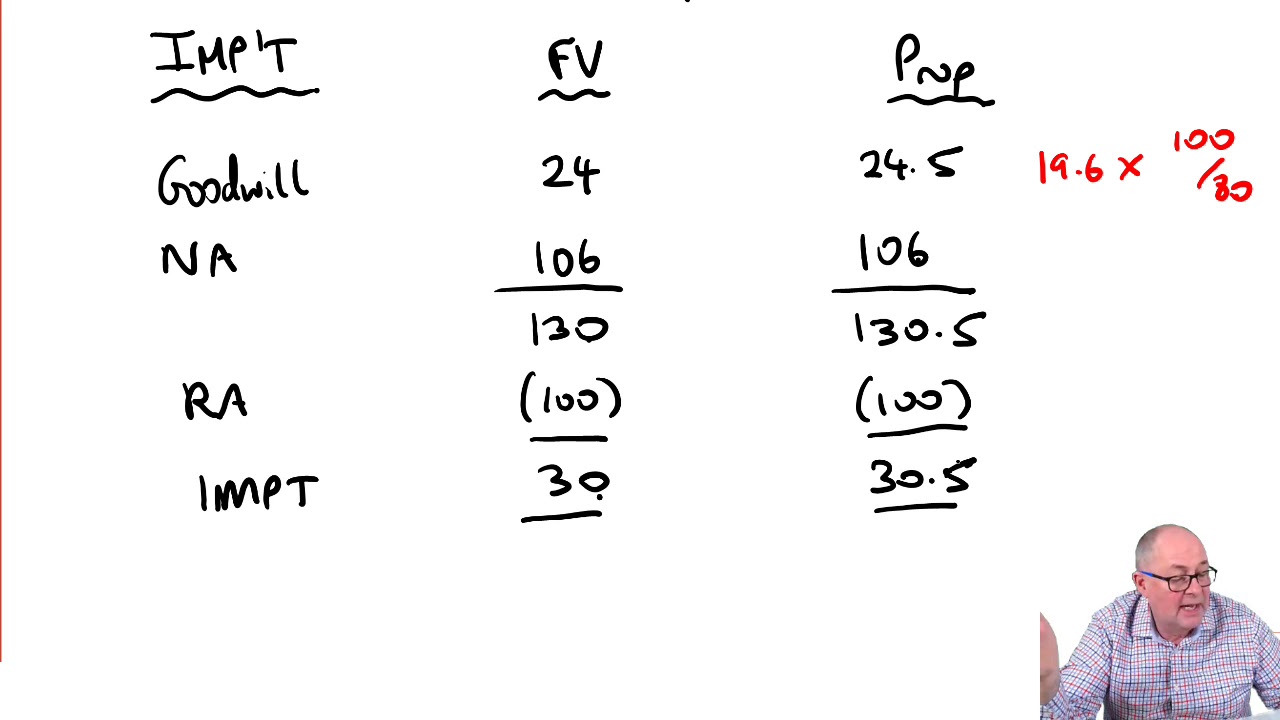 IMP'T FV Prop
Goodwill 24 24.5 19.6 x 100/80
NA 106 106
130 130.5
RA (100) (100)
IMPT 30 30.5